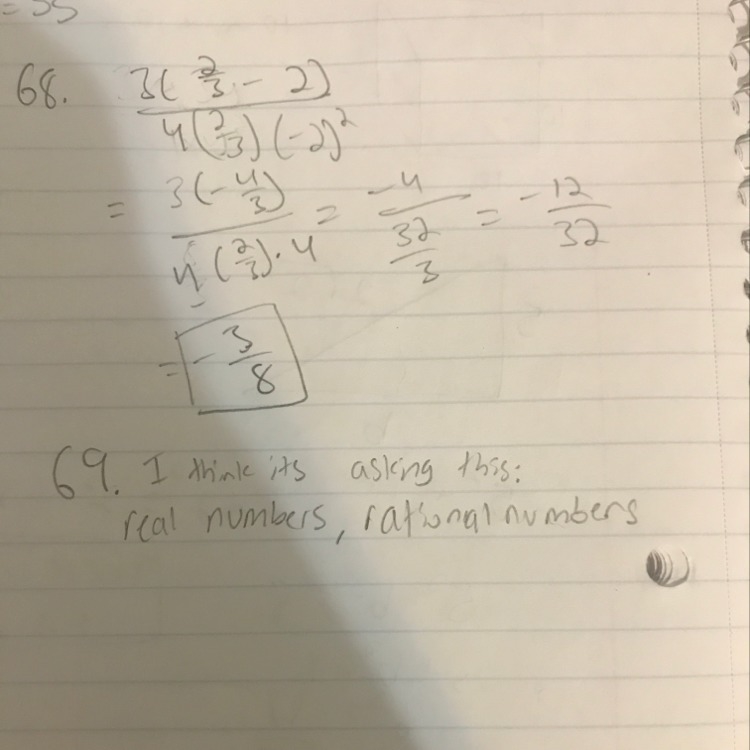 = 35
68. 3(2/3 - 2) / 4(2/3)(-2)²
= 3(-4/3) / 4(2/3)·4 = -4 / (32/3) = -12/32
= -3/8
69. I think its asking this:
real numbers, rational numbers